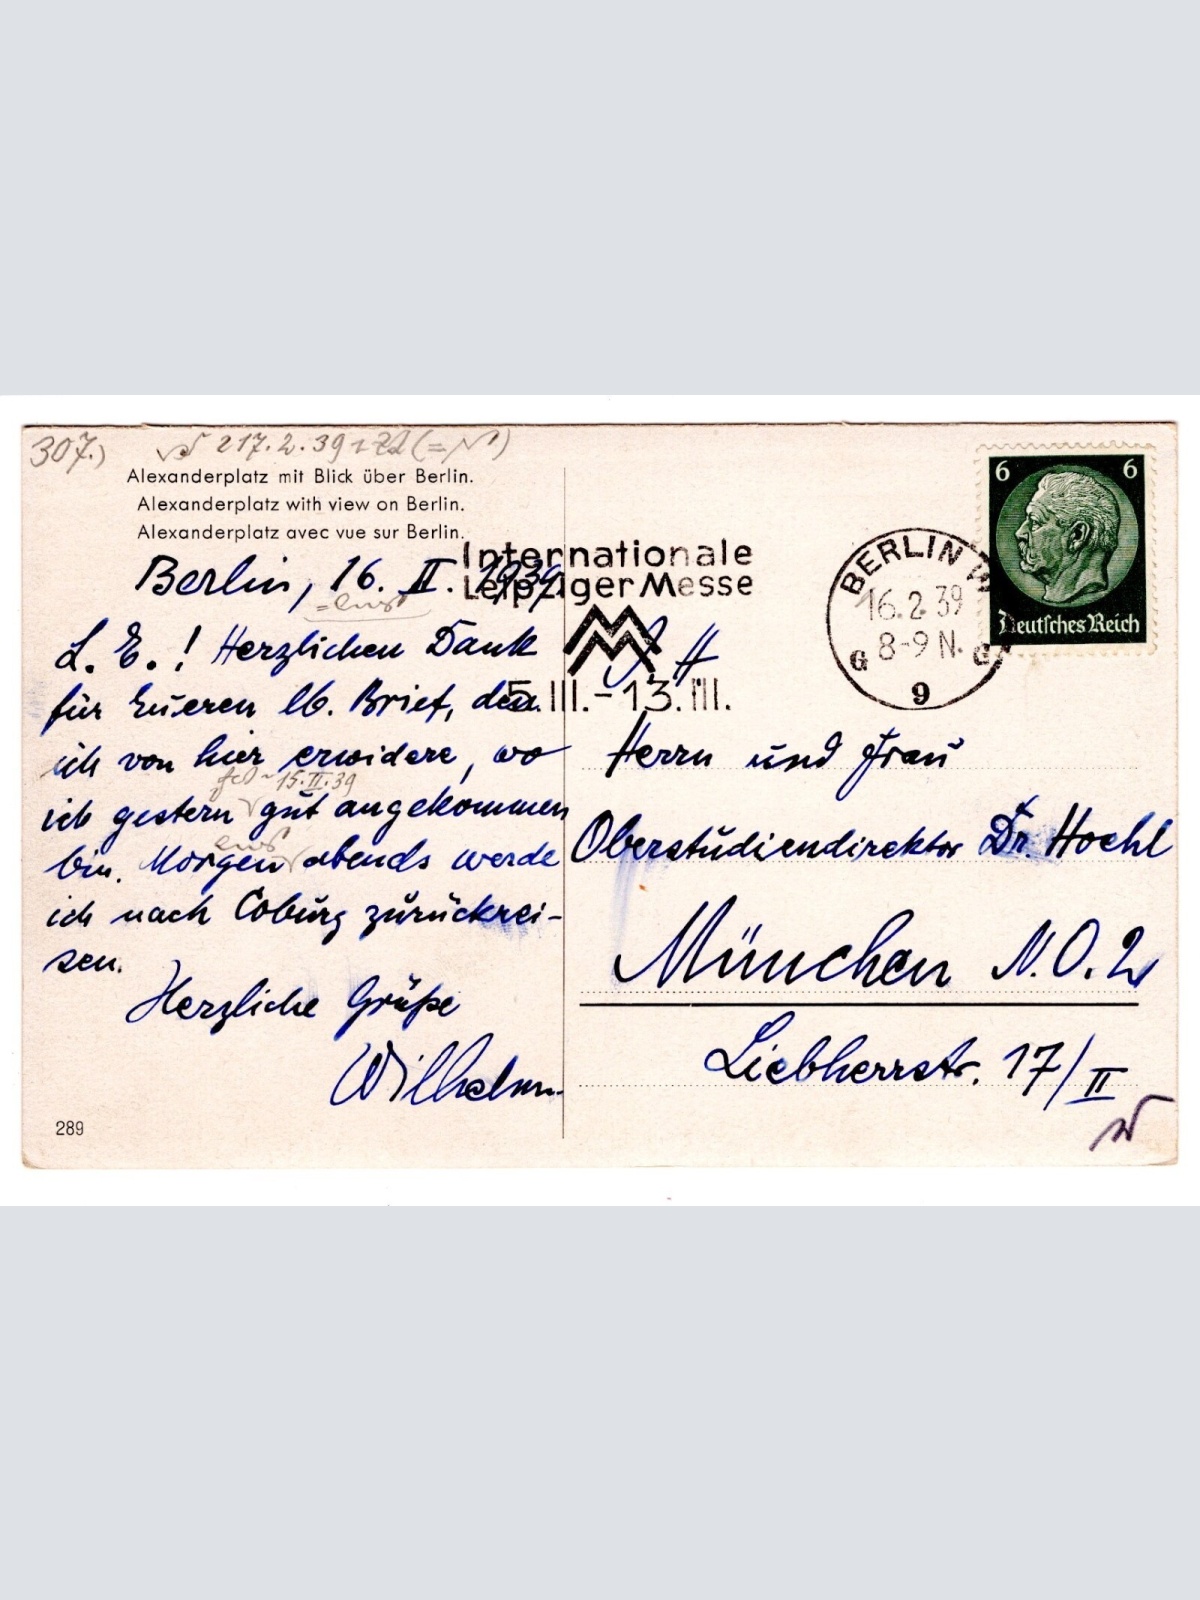 307.)
217.2.39
Alexanderplatz mit Blick über Berlin.
Alexanderplatz with view on Berlin.
Alexanderplatz avec vue sur Berlin.
Berlin, 16. II. 1939
L. E.! Herzlichen Dank
für Eueren lb. Brief, den
ich von hier erwidere, wo
15.II.39
ich gestern gut angekommen
bin. Morgen abends werde
ich nach Coburg zurückrei-
sen.
Herzliche Grüße
Wilhelm
289
Internationale
Leipziger Messe
5.III.-13.III.
BERLIN W
16.2.39
8-9 N.
G G
9
6 6
Deutsches Reich
Herrn und Frau
Oberstudiendirektor Dr. Hoehl
München N.O. 2
Liebherrstr. 17/II